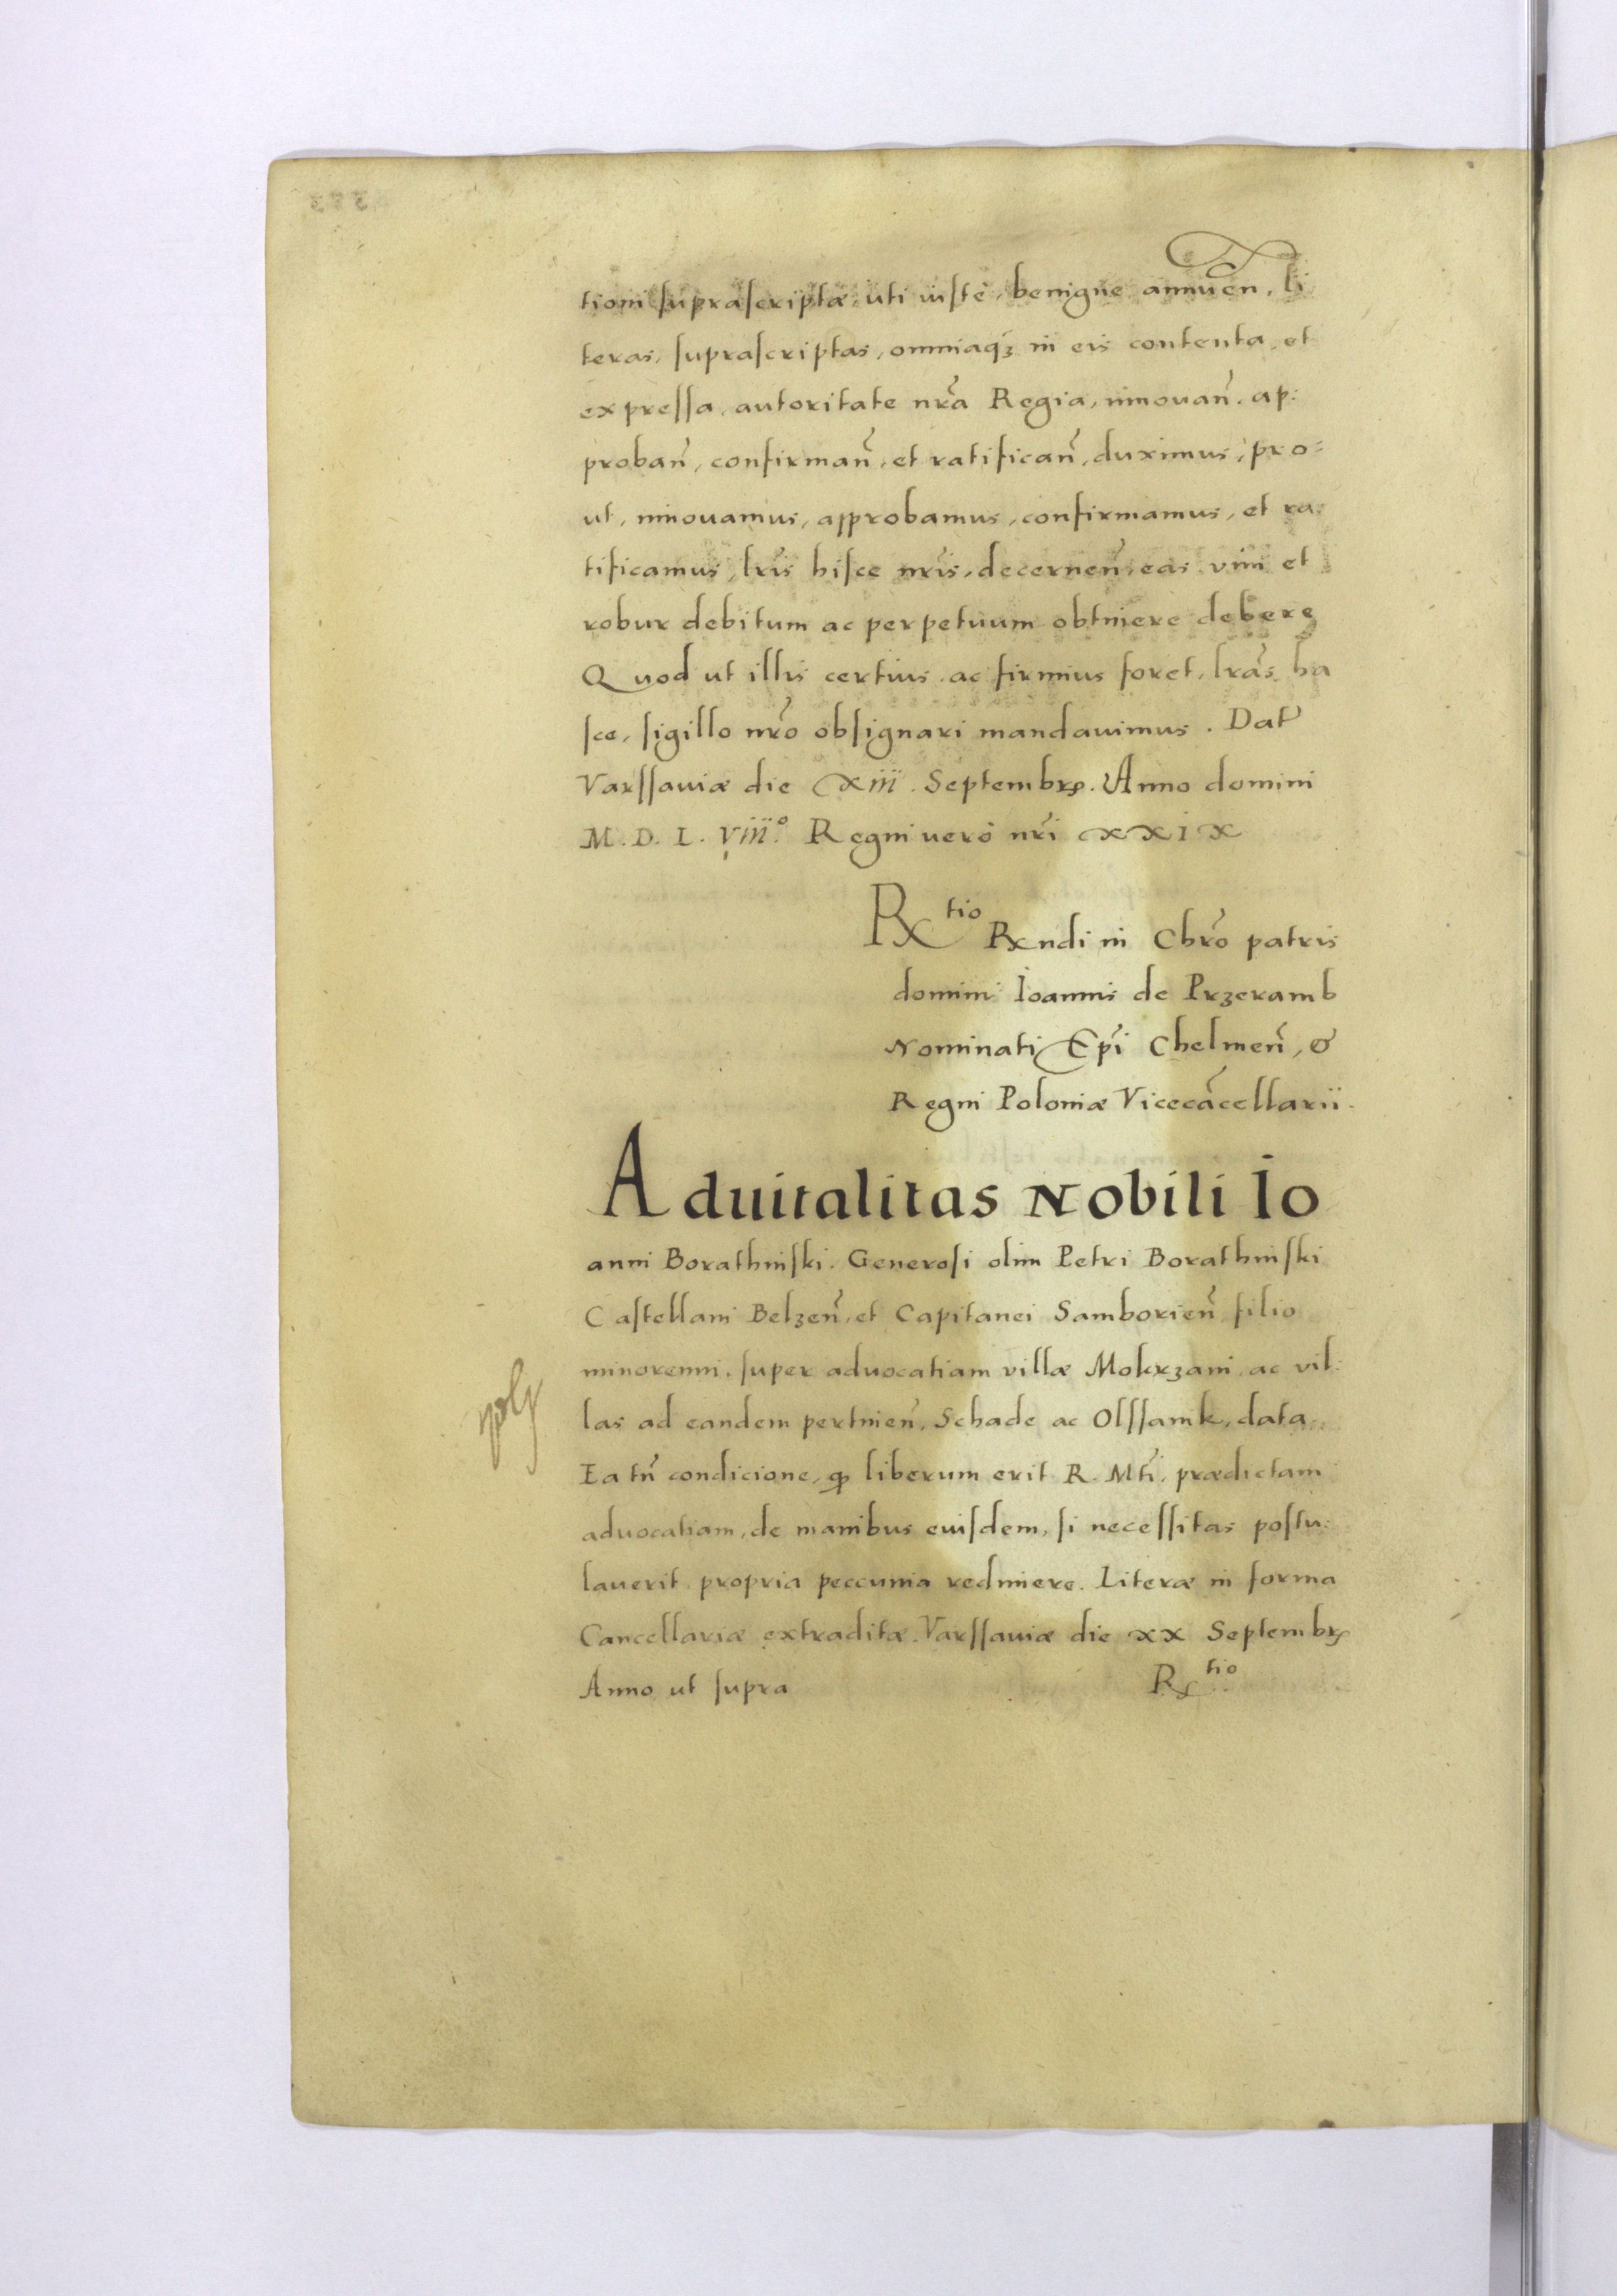 tioni suprascriptæ uti iuste, benigne annuen̄, li
teras, suprascriptas, omniaqꝫ in eis contenta, et
expressa, autoritate nr̄a Regia, innouan̄. ap:
proban̄, confirman̄, et ratifican̄, duximus, pro:
ut, innouamus, approbamus, confirmamus, et ra:
tificamus, lr̄is hisce nr̄is, decernen̄, eas vim et
robur debitum ac perpetuum obtinere debere
Quod ut illis certius ac firmius foret, lr̄as ha
sce, sigillo nr̄o obsignari mandauimus. Dat̄
Varssauiæ die Xiii. Septembrꝭ. Anno domini
M. D. L. Viii.° Regni vero nr̄i XXIX
Rx tio Rxndi in Chr̄o patris
domini Ioannis de Przeramb
Nominati Ep̄i Chelmen̄, &
Regni Poloniæ Vicecācellarii.
Aduitalitas Nobili Io
anni Borathinski. Generosi olim Petri Borathinski
Castellani Belzen̄, et Capitanei Samborien̄ filio
minorenni, super aduocatiam villæ Mokrzani, ac vil:
las ad eandem pertinen̄, Schade ac Olssanik, data.
Ea tn̄ condicione, ꝙ liberum erit R. Mt̄i. prædictam
aduocatiam, de manibus euisdem, si necessitas postu:
lauerit propria peccunia redimere. Literæ in forma
Cancellariæ extraditæ. Varssauiæ die XX Septembrꝭ
Anno ut supra Rx tio